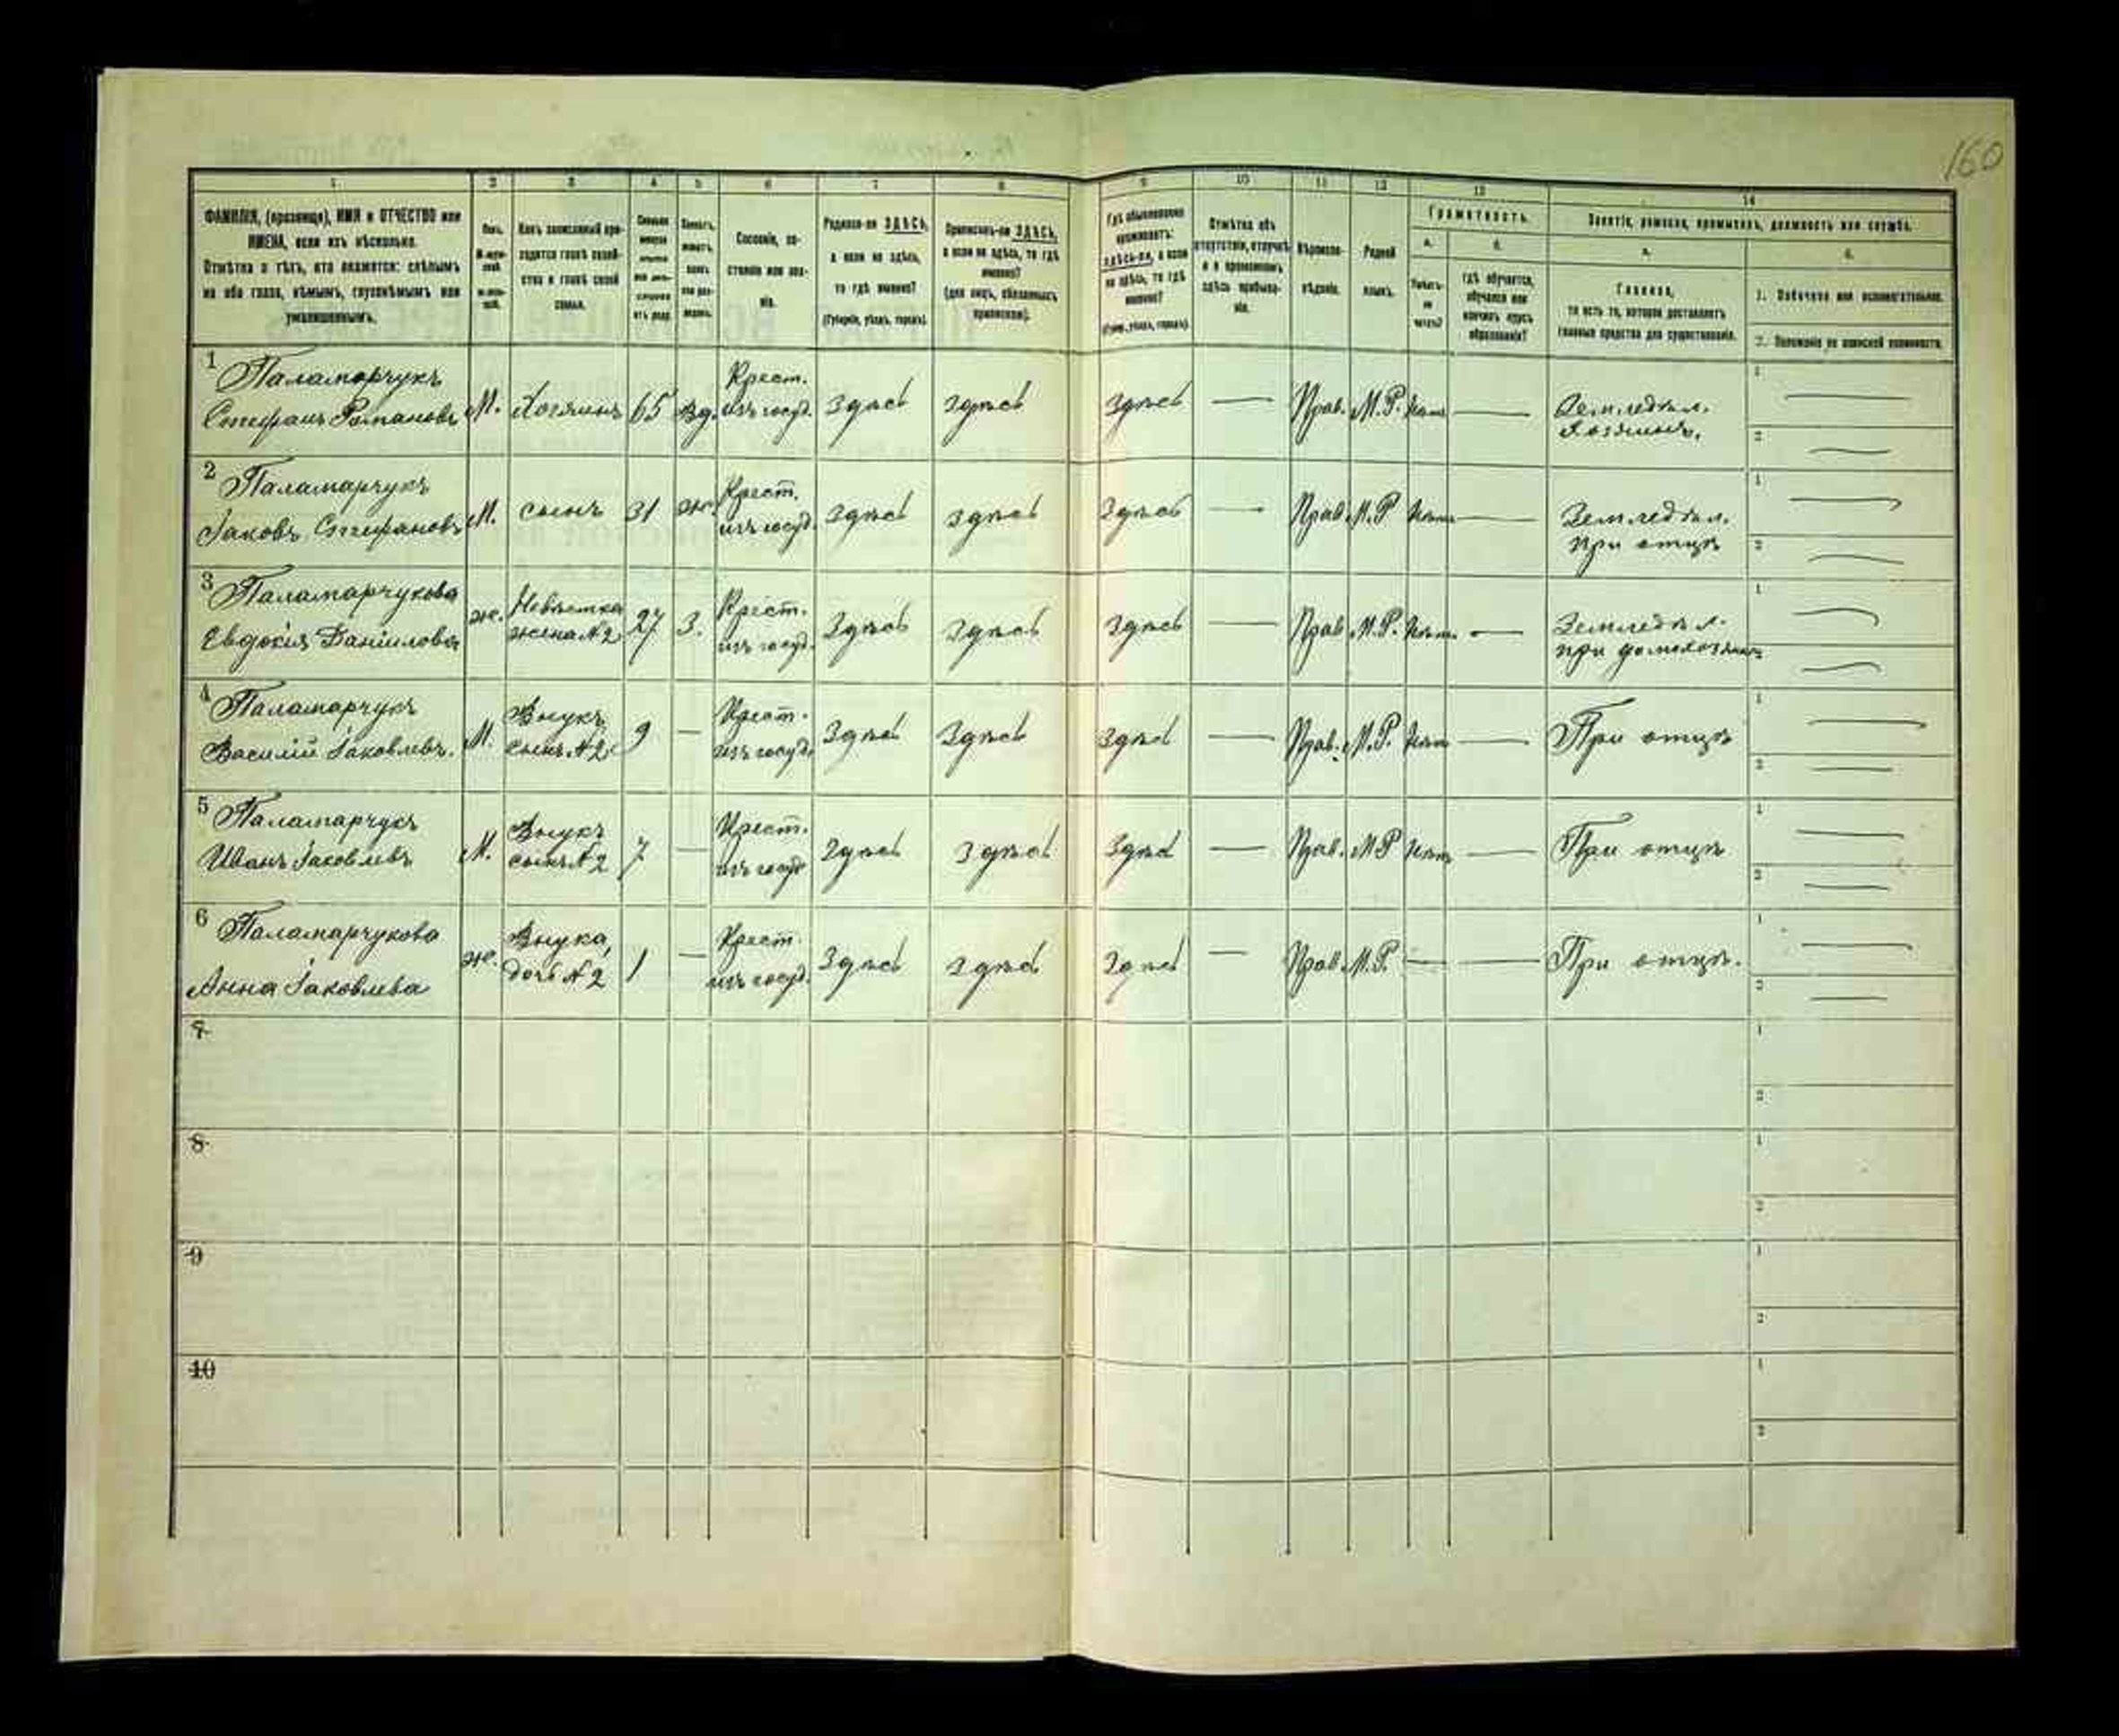 160
1 2 3 4 5 6 7 8 9 10 11 12 13 14
ФАМИЛІЯ, (прозвище), ИМЯ и ОТЧЕСТВО или
ИМЕНА, если ихъ нѣсколько.
Отмѣтка о тѣхъ, кто окажется: слѣпымъ
на оба глаза, нѣмымъ, глухонѣмымъ или
умалишеннымъ.
Какъ записанный при-
ходится главѣ хозяй-
ства и главѣ своей
семьи.
Сословіе, со-
стояніе или зва-
ніе.
Родился-ли ЗДѢСЬ,
а если не здѣсь,
то гдѣ именно?
(Губернія, уѣздъ, городъ).
Приписанъ-ли ЗДѢСЬ,
а если не здѣсь, то гдѣ
именно?
(для лицъ, обязанныхъ
припиской).
Гдѣ обыкновенно
проживаетъ:
здѣсь-ли, а если
не здѣсь, то гдѣ
именно?
(Губер., уѣздъ, городъ).
Отмѣтка объ
отсутствіи, отлучкѣ
и о временномъ
здѣсь пребыва-
ніи.
Вѣроиспо-
вѣданіе.
Родной
языкъ.
Грамотность.
а. б.
Умѣетъ-
ли
читать?
гдѣ обучается,
обучался или
кончилъ курсъ
образованія?
Занятіе, ремесло, промыселъ, должность или служба.
а. б.
Главное,
то есть то, которое доставляетъ
главныя средства для существованія.
1. Побочное или вспомогательное.
2. Положеніе по воинской повинности.
1 Паламарчукъ
Стефанъ Романовъ М. Хозяинъ 65 Вд. Крест. изъ госуд. Здѣсь Здѣсь Здѣсь — Прав. М.Р. Нѣтъ — Земледѣл. Хозяинъ. 1 — 2 —
2 Паламарчукъ
Іаковъ Стефановъ М. сынъ 31 ж. Крест. изъ госуд. Здѣсь Здѣсь Здѣсь — Прав. М.Р Нѣтъ — Земледѣл. При отцѣ 1 — 2 —
3 Паламарчукова
Евдокія Даніилова ж. Невѣстка жена №2 27 З. Крест. изъ госуд. Здѣсь Здѣсь Здѣсь — Прав М.Р. Нѣтъ — Земледѣл. при домохозяинѣ 1 — 2 —
4 Паламарчукъ
Василій Іаковлевъ. М. Внукъ сынъ №2 9 — Крест. изъ госуд. Здѣсь Здѣсь Здѣсь — Прав. М.Р. Нѣтъ — При отцѣ 1 — 2 —
5 Паламарчукъ
Иванъ Іаковлевъ М. Внукъ сынъ №2 7 — Крест. изъ госуд Здѣсь Здѣсь Здѣсь — Прав. М.Р Нѣтъ — При отцѣ 1 — 2 —
6 Паламарчукова
Анна Іаковлева ж. Внука, дочь №2 1 — Крест. изъ госуд. Здѣсь Здѣсь Здѣсь — Прав М.Р. — — При отцѣ. 1 — 2 —
7 1 2
8 1 2
9 1 2
10 1 2